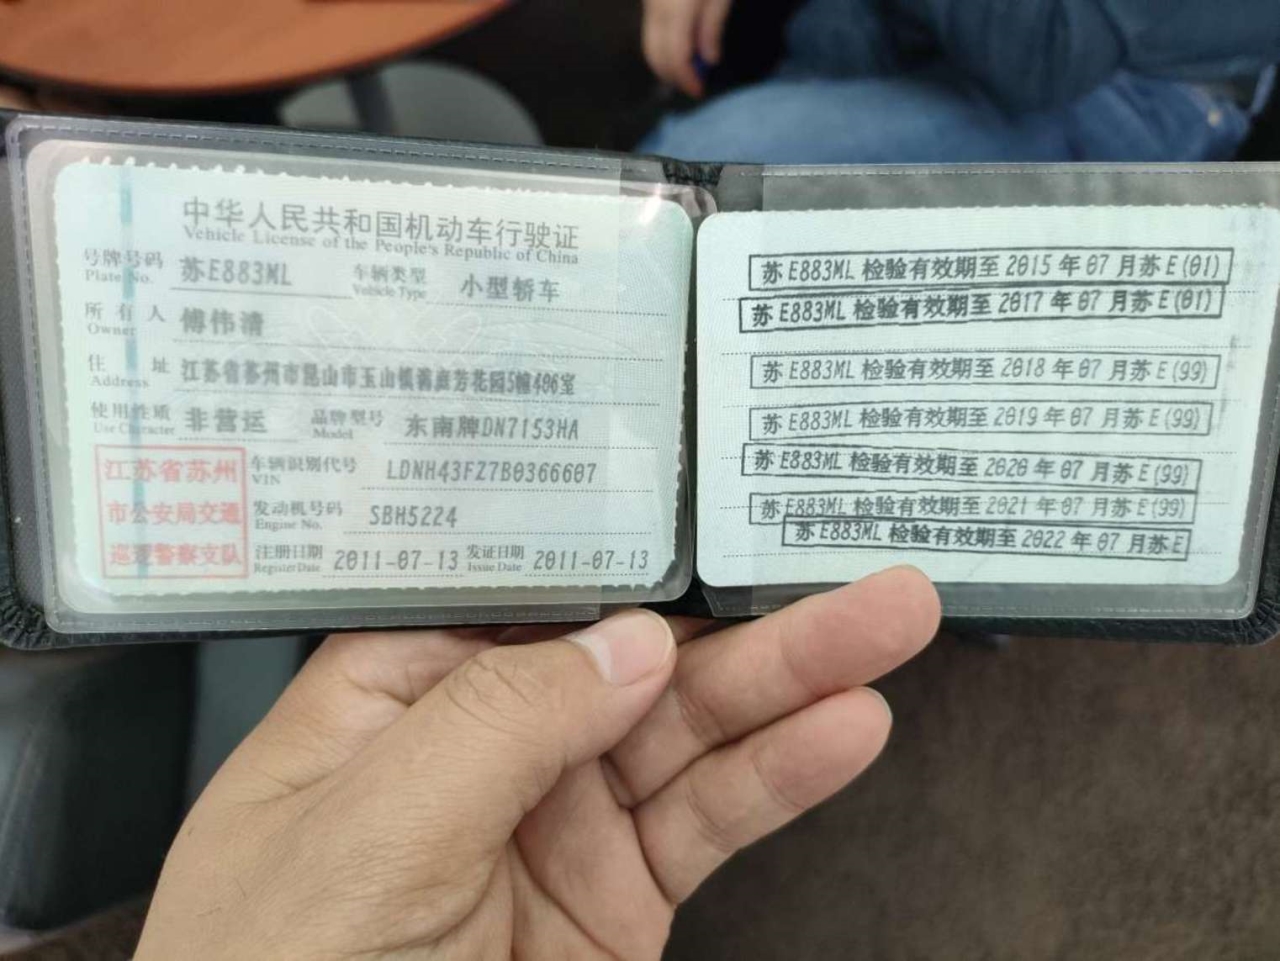 中华人民共和国机动车行驶证
Vehicle License of the People's Republic of China
号牌号码 苏E883ML 车辆类型 小型轿车
Plate No. Vehicle Type
所有人 傅伟清
Owner
住址 江苏省苏州市昆山市玉山镇 芳花园5幢406室
Address
使用性质 非营运 品牌型号 东南牌DN7153HA
Use Character Model
江苏省苏州
市公安局交通
巡逻警察支队
车辆识别代号 LDNH43FZ7B0366607
VIN
发动机号码 SBH5224
Engine No.
注册日期 2011-07-13 发证日期 2011-07-13
Register Date Issue Date
苏E883ML 检验有效期至 2015 年 07 月苏 E(01)
苏E883ML 检验有效期至 2017 年 07 月苏 E(01)
苏E883ML 检验有效期至 2018 年 07 月苏 E(99)
苏E883ML 检验有效期至 2019 年 07 月苏 E(99)
苏E883ML 检验有效期至 2020 年 07 月苏 E(99)
苏E883ML 检验有效期至 2021 年 07 月苏 E(99)
苏E883ML 检验有效期至 2022 年 07 月苏E